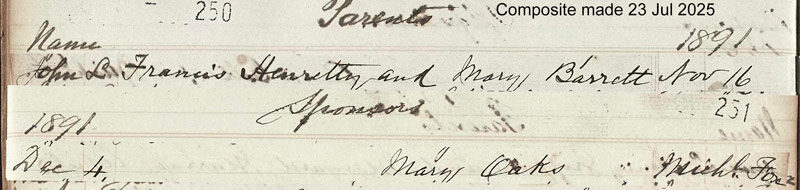 Composite made 23 Jul 2025
250
Parents
Name 1891
John B Francis Henretty and Mary Barrett Nov 16
Sponsors 251
1891
Dec 4. Mary Oaks Michl. Fox